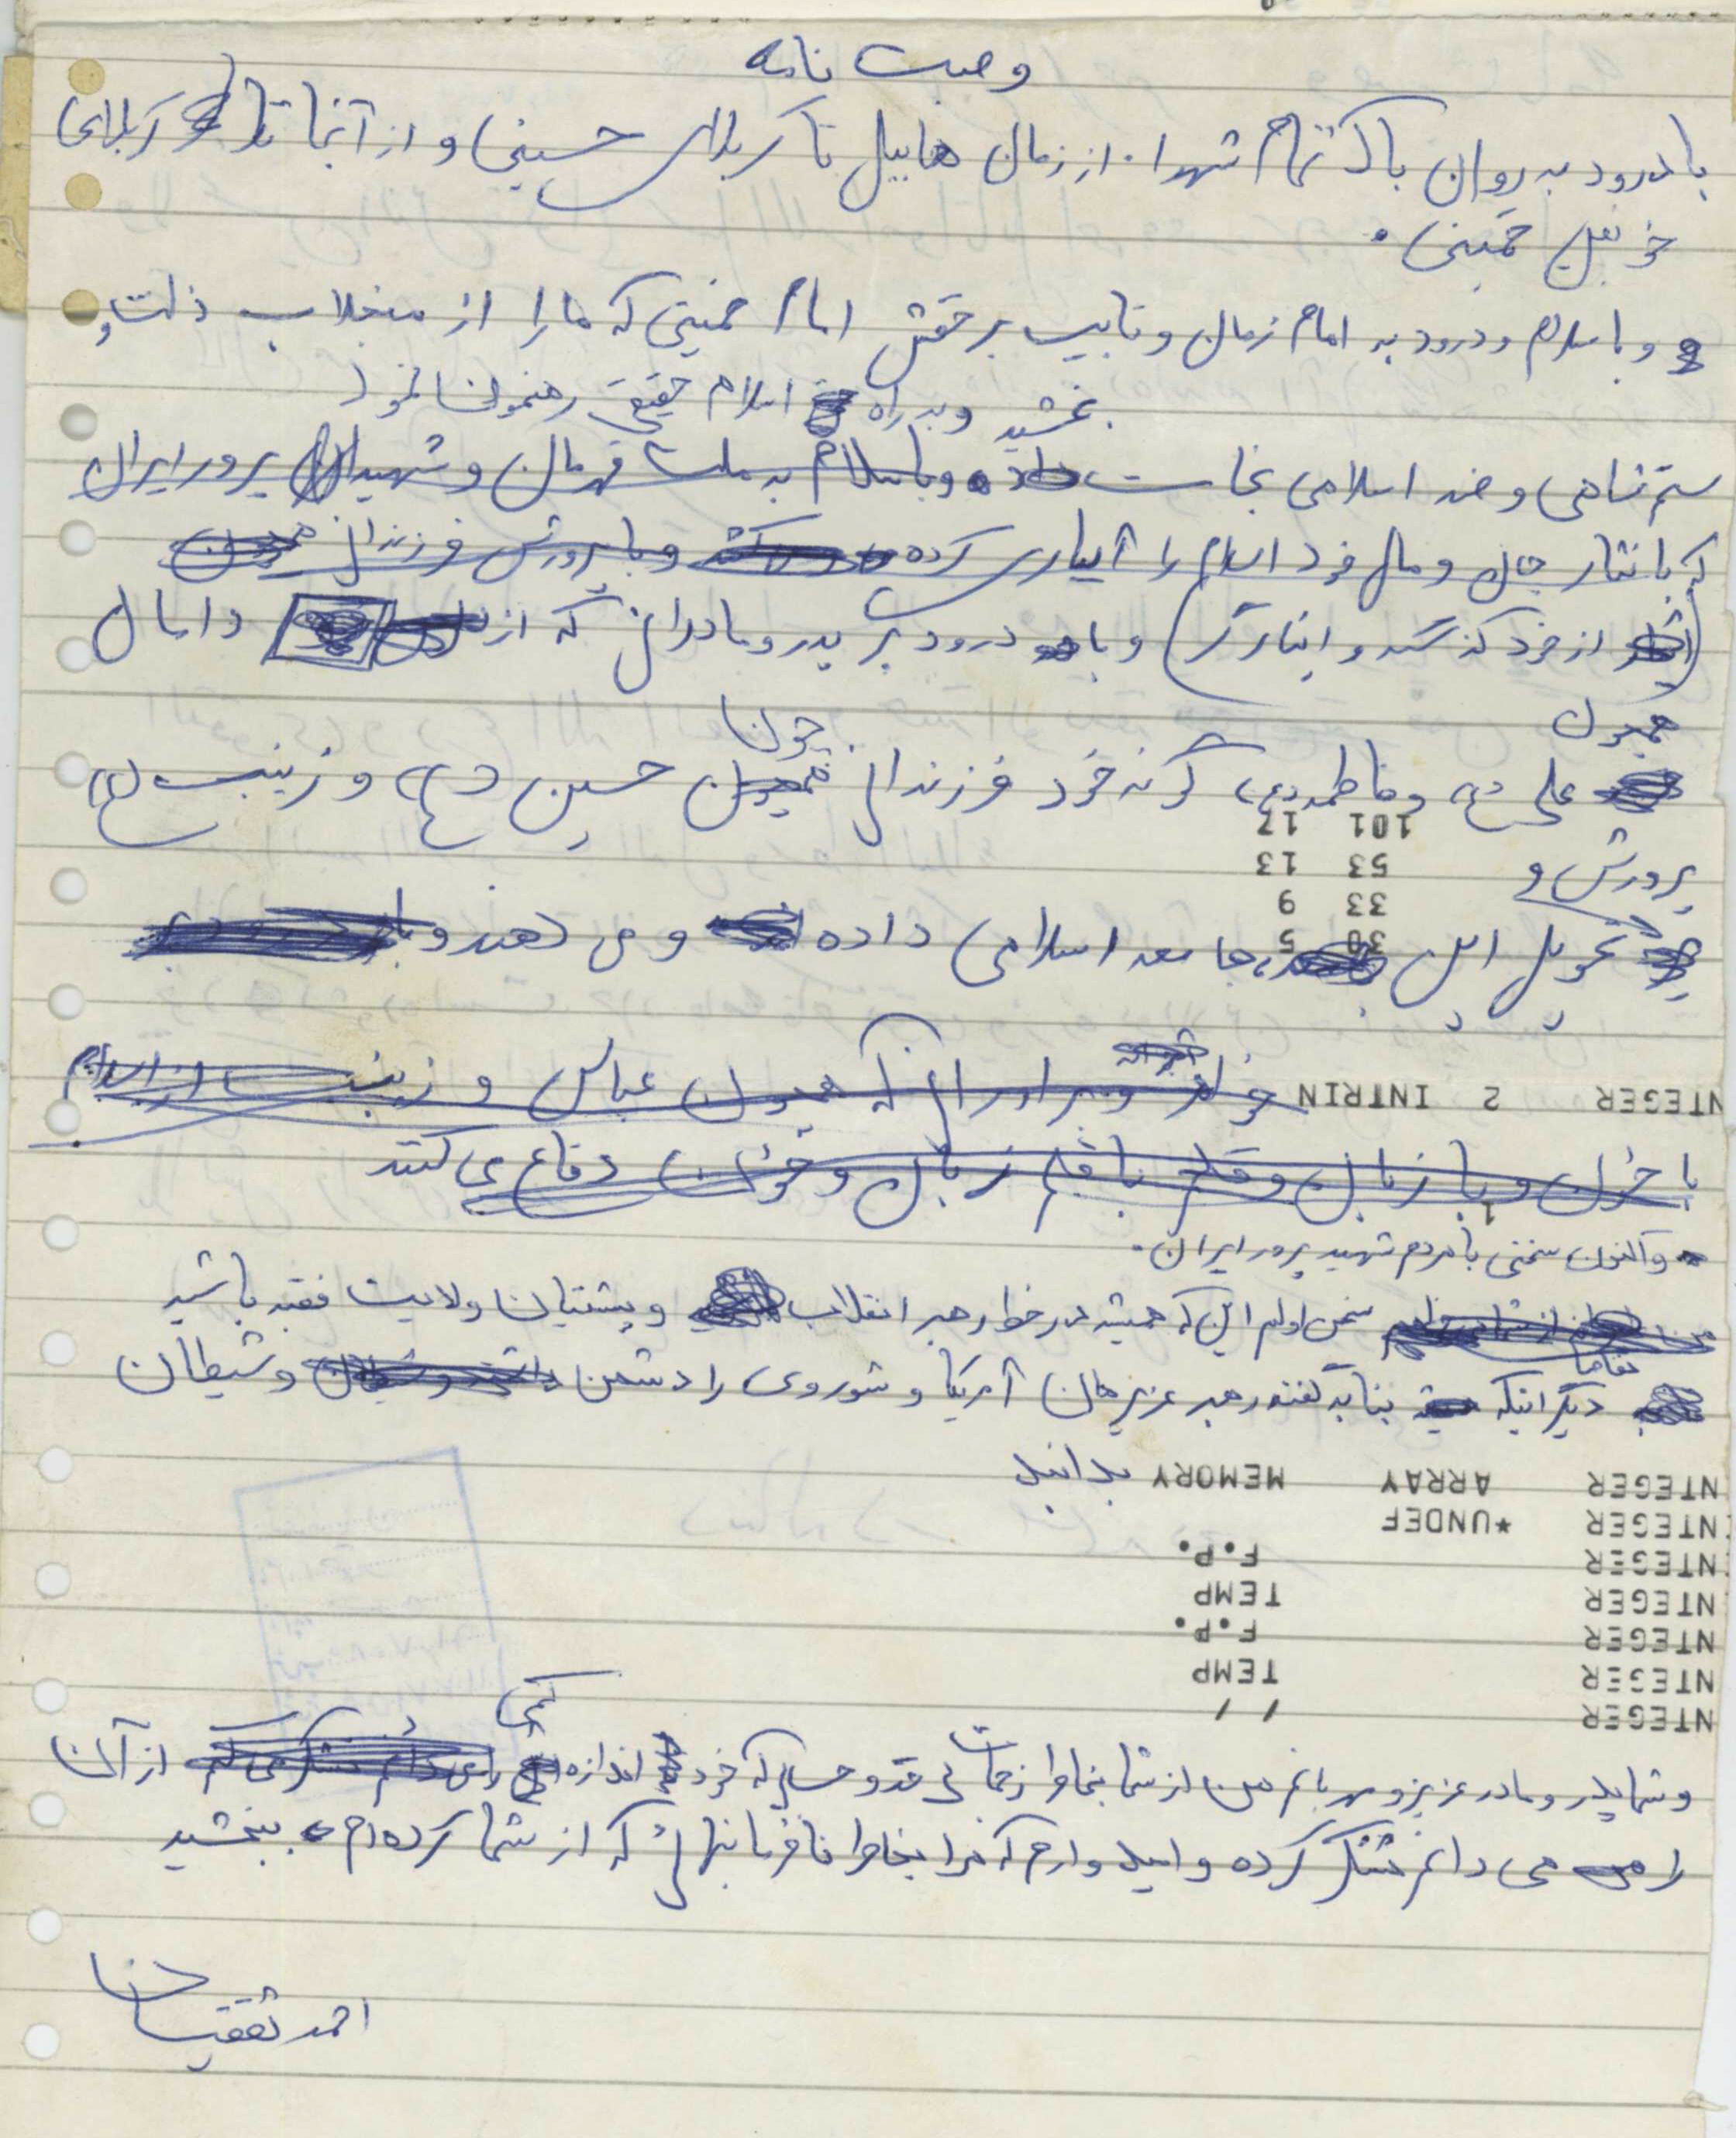 وصیت نامه
با درود به روان پاک تمام شهدا. از زمان هابیل تا کربلای حسینی و از آنجا تا کربلای
خونین خمینی.
و با سلام و درود به امام زمان و نایب برحقش امام خمینی که ما را از منجلاب ذلت و
بخشید و به راه اسلام حقیقی رهنمون نمود
ستم شاهی و ضد اسلامی نجات داده و با سلام به ملت قهرمان و شهید پرور ایران
که با نثار جان و مال خود اسلام را آبیاری کرده و با پرورش فرزندانی همچون
از خود گذشته و ایثارگر) و با درود بر پدر و مادرانی که از دامان
همچون
علی (ع) و فاطمه (ع) گونه خود فرزندانی چون حسین (ع) و زینب (ع)
101 17
53 13
پرورش و
33 9
30 5
تحویل این جامعه اسلامی داده و می دهند و با
NTEGER 2 INTRIN
خواهر و برادرانی که همچون عباس و زینب از اسلام
با خون و با زبان و قلم با قلم زبان و خونشان دفاع می کنند
و اکنون سخنی با مردم شهید پرور ایران.
سخن اولم این که همیشه در خط رهبر انقلاب و پشتیبان ولایت فقیه باشید
دیگر اینکه بنا به گفته رهبر عزیزمان آمریکا و شوروی را دشمن و شیطان
بدانید
NTEGER ARRAY MEMORY
NTEGER *UNDEF
NTEGER F.P.
NTEGER TEMP
NTEGER F.P.
NTEGER TEMP
NTEGER / /
کمی
و شما پدر و مادر عزیز و مهربانم من از شما بخاطر زحمات بی حد و حسابی که خود اندازه از آن
را می دانم تشکر کرده و امید وارم که مرا بخاطر نافرمانیهائی که از شما کرده ام ببخشید
احمد ثقفیان